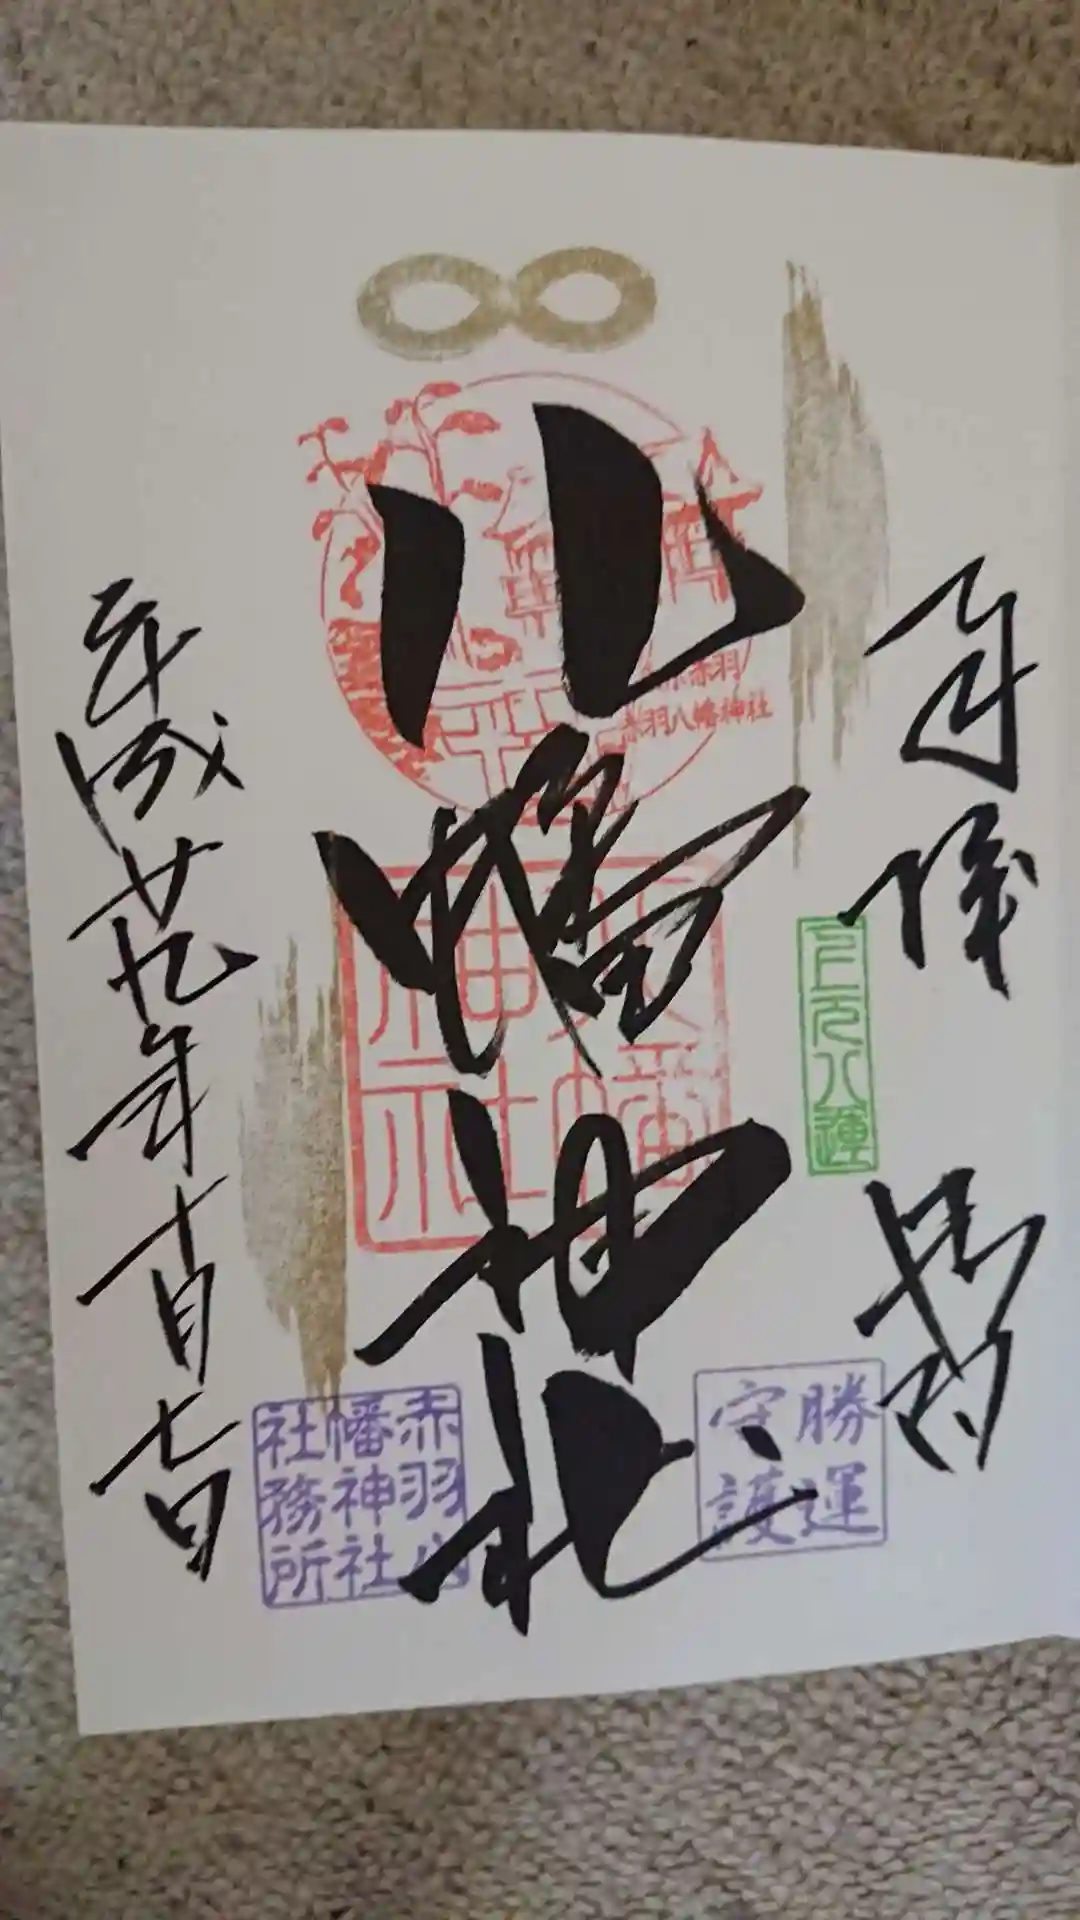 東京赤羽
赤羽八幡神社
八幡神社
八幡神社
上元八運
勝運
守護
平成廿九年十月七日
赤羽八
幡神社
社務所